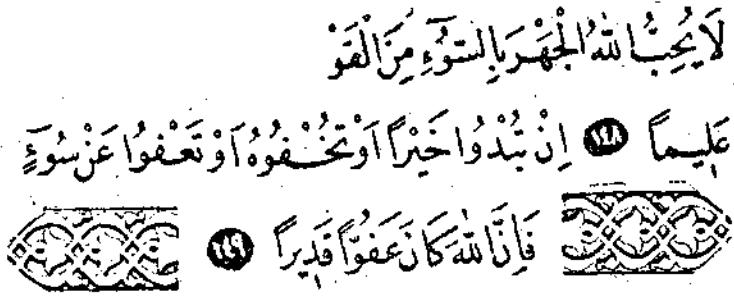 لَا يُحِبُّ اللّٰهُ الْجَهْرَ بِالسُّوٓءِ مِنَ الْقَوْ
عَلِيمًا ﴿١٤٨﴾ اِنْ تُبْدُوا خَيْرًا اَوْ تُخْفُوهُ اَوْ تَعْفُوا عَنْ سُوٓءٍ
فَاِنَّ اللّٰهَ كَانَ عَفُوًّا قَدِيرًا ﴿١٤٩﴾